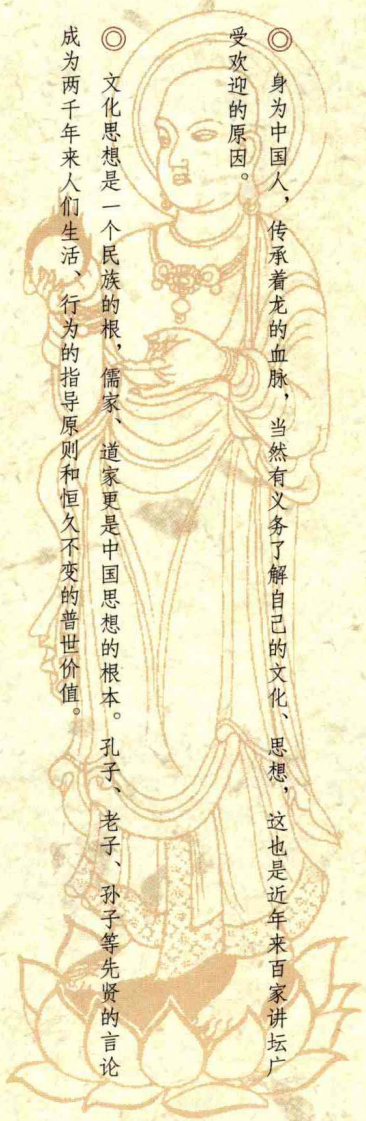 ◎ 身为中国人，传承着龙的血脉，当然有义务了解自己的文化、思想，这也是近年来百家讲坛广
受欢迎的原因。
◎ 文化思想是一个民族的根，儒家、道家更是中国思想的根本。孔子、老子、孙子等先贤的言论
成为两千年来人们生活、行为的指导原则和恒久不变的普世价值。